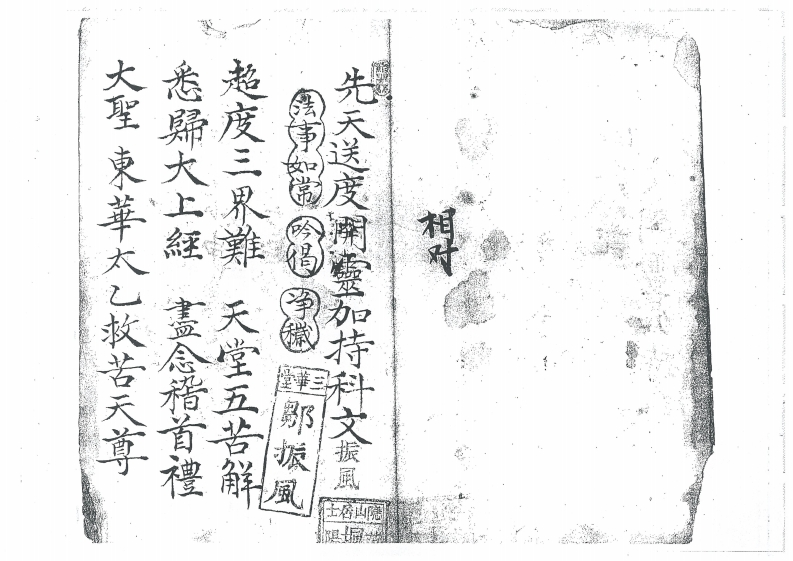 相对
先天送度開靈加持科文
振風
法事如常 吟偈 净穢
三華堂
鄒振風
超度三界難 天堂五苦解
悉歸大上經 盡念稽首禮
大聖東華太乙救苦天尊
隱山居士